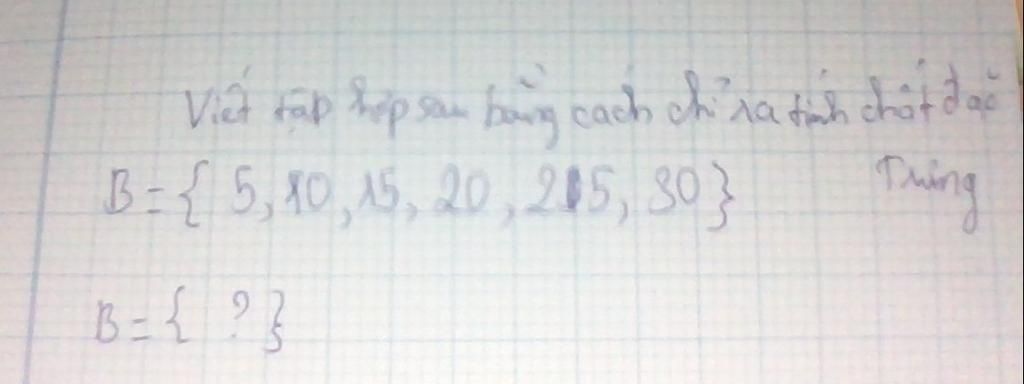 Viết tập hợp sau bằng cách chỉ ra tính chất đặc
Trưng
B={ 5, 10, 15, 20, 25, 30}
B={ ? }